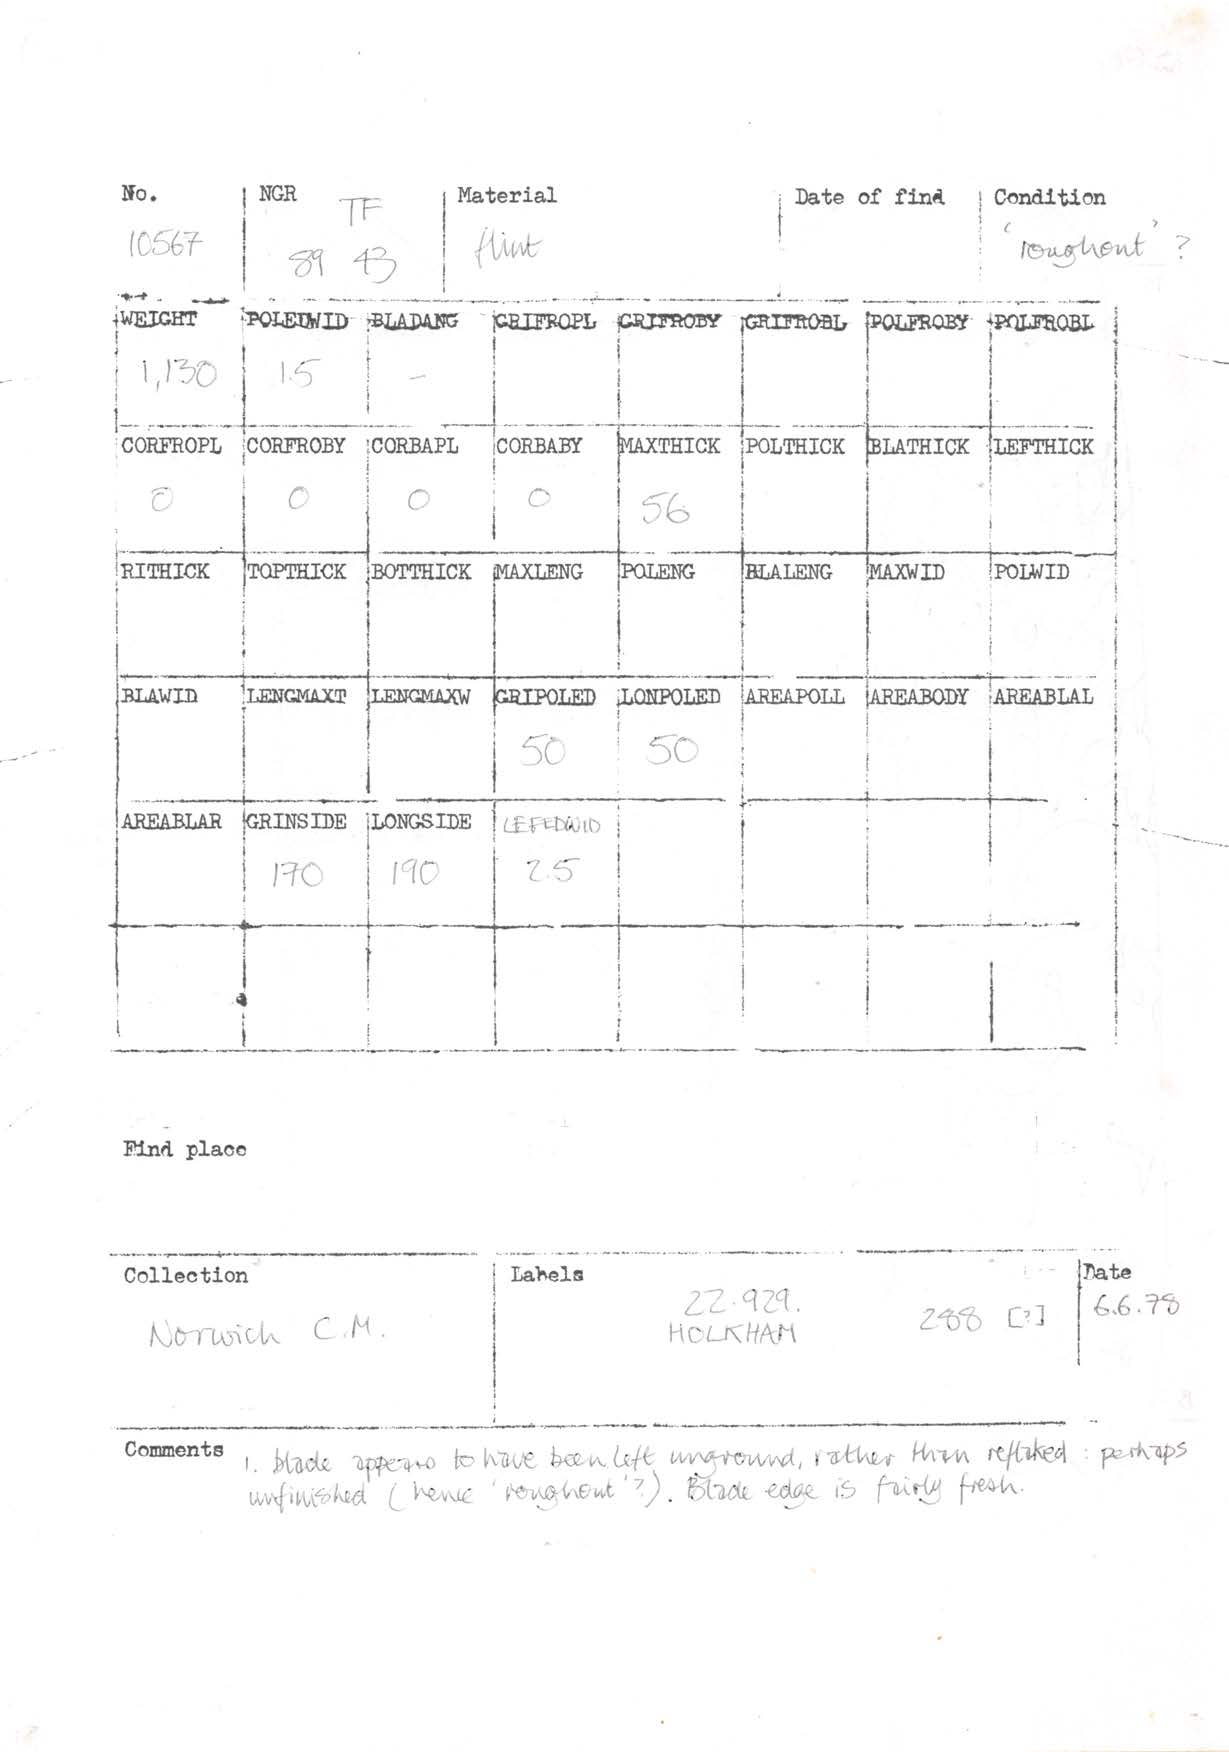 No. NGR Material Date of find Condition
10567 TF 89 43 flint 'roughout' ?
WEIGHT POLEDWID BLADANG GRIFROPL GRIFROBY GRIFROBL POLFROBY POLFROBL
1,130 1.5 –
CORFROPL CORFROBY CORBAPL CORBABY MAXTHICK POLTHICK BLATHICK LEFTHICK
0 0 0 0 56
RITHICK TOPTHICK BOTTHICK MAXLENG POLENG BLALENG MAXWID POLWID
BLAWID LENGMAXT LENGMAXW GRIPOLED LONPOLED AREAPOLL AREABODY AREABLAL
50 50
AREABLAR GRINSIDE LONGSIDE LEFEDWID
170 190 2.5
Find place
Collection Labels Date
Norwich C.M. 22.929. 288 [?] 6.6.78
HOLKHAM
Comments 1. blade appears to have been left unground, rather than reflaked : perhaps
unfinished (hence 'roughout'?). Blade edge is fairly fresh.